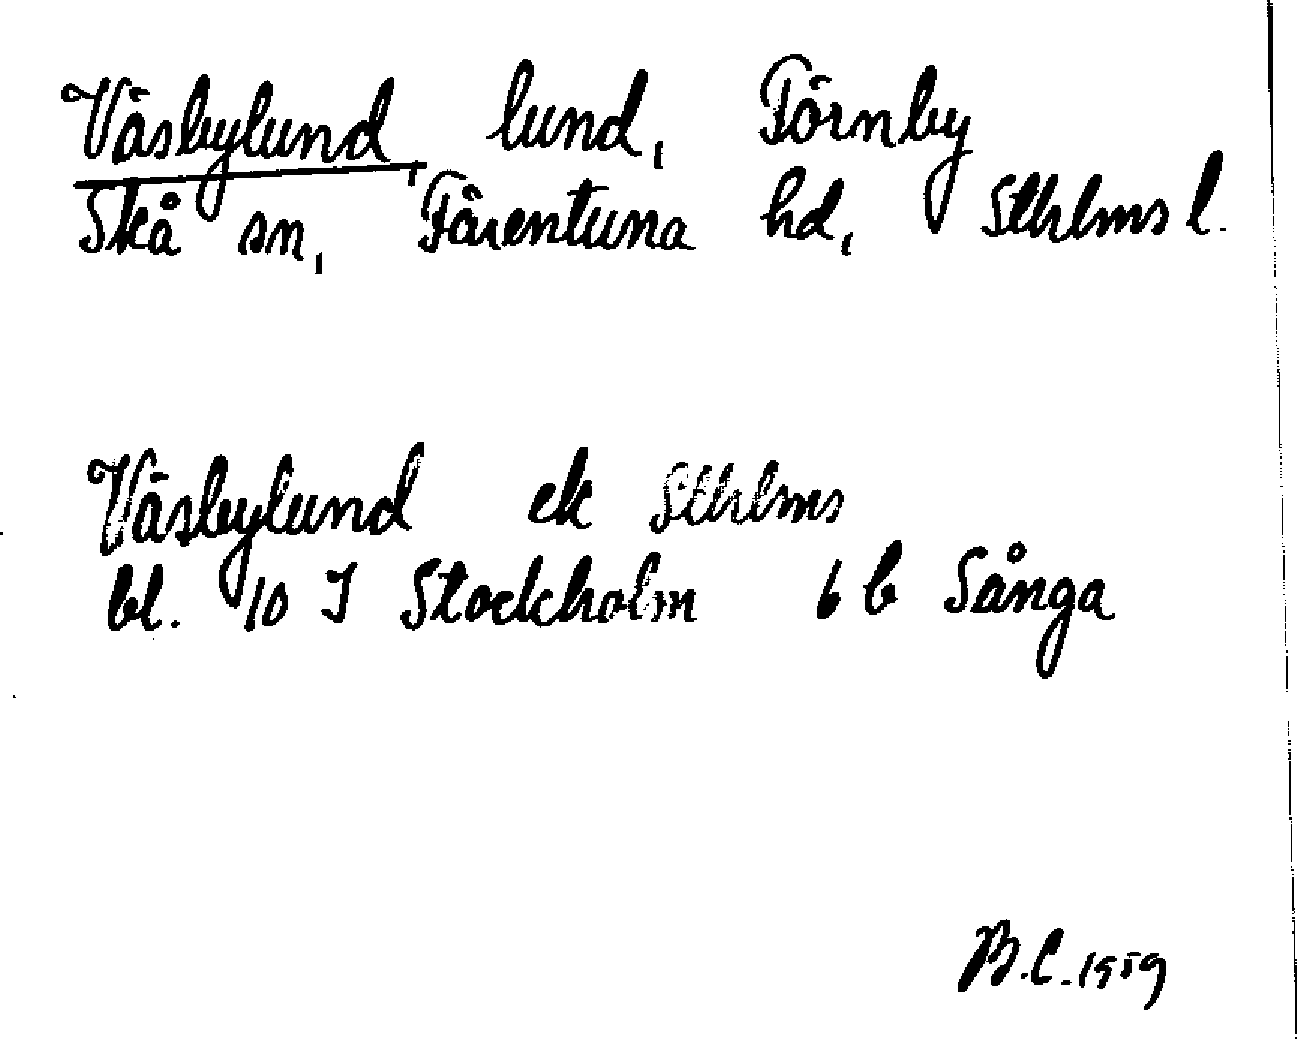 Väsbylund, lund, Törnby
Skå sn, Färentuna hd, Sthlms l.
Väsbylund ek Sthlms
bl. 10 I Stockholm 6 b Sånga
B.C. 1959